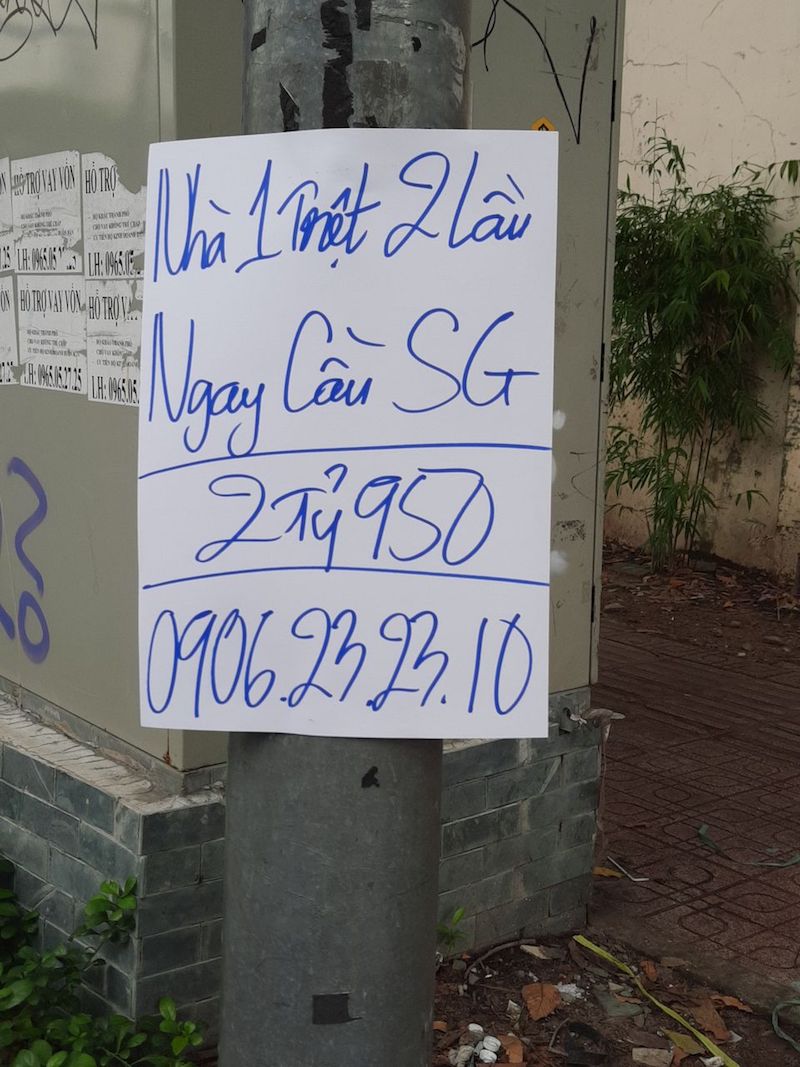 Nhà 1 Trệt 2 lầu
Ngay Cầu SG
2 Tỷ 950
0906.23.23.10
HỖ TRỢ VAY VỐN
HỖ TRỢ
LH: 0965.05
LH: 0965.05
HỖ TRỢ VAY VỐN
HỖ TRỢ V
LH: 0965.05.27.25
LH: 0965.05